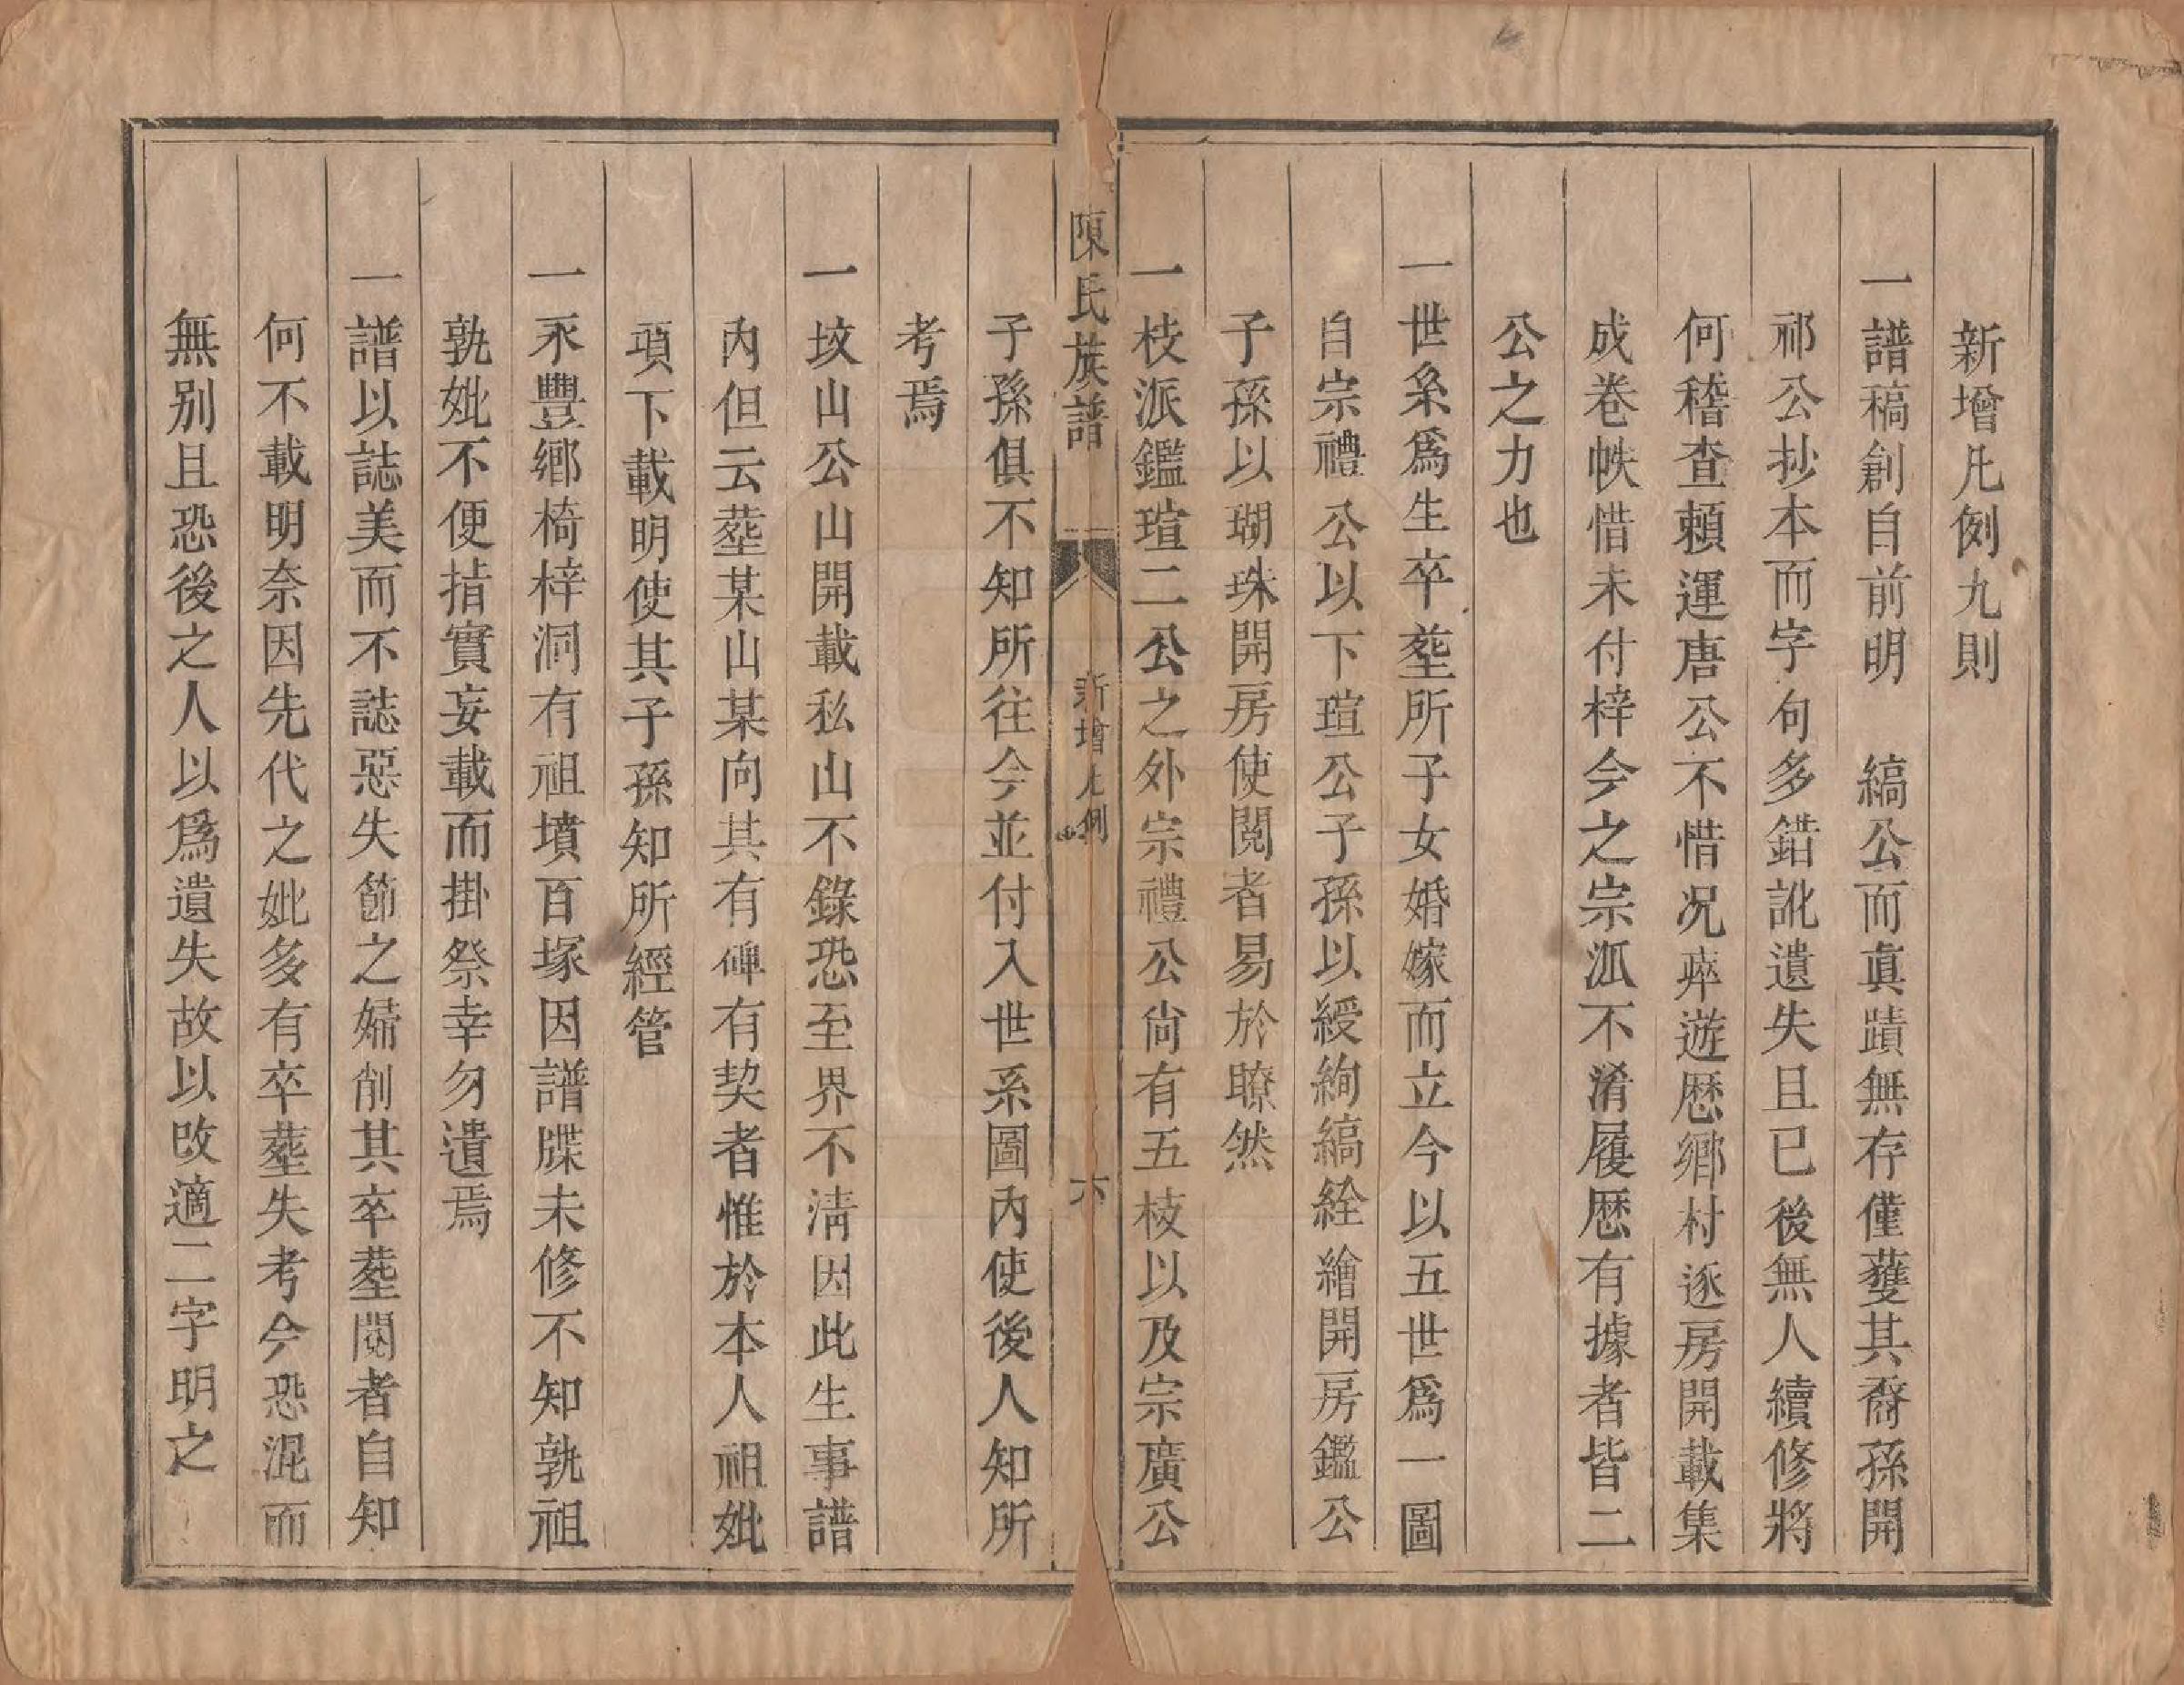 新增凡例九則
一譜稿創自前明 縞公而眞蹟無存僅蒦其裔孫開
祁公抄本而字句多錯訛遺失且已後無人續修將
何稽查賴運唐公不惜况瘁遊歴鄉村逐房開載集
成卷帙惜未付梓今之宗泒不淆履歴有據者皆二
公之力也
一世系爲生卒塟所子女婚嫁而立今以五世爲一圖
自宗禮公以下瑄公子孫以綬絢縞絟繪開房鑑公
子孫以瑚珠開房使閱者易於瞭然
一枝派鑑瑄二公之外宗禮公尙有五枝以及宗廣公
陳氏族譜 新增凡例 六
子孫俱不知所往今並付入世系圖內使後人知所
考焉
一坟山公山開載私山不錄恐至界不淸因此生事譜
內但云塟某山某向其有碑有契者惟於本人祖妣
項下載明使其子孫知所經管
一永豐鄉椅梓洞有祖墳百塚因譜牒未修不知孰祖
孰妣不便指實妄載而掛祭幸勿遺焉
一譜以誌美而不誌惡失節之婦削其卒塟閱者自知
何不載明奈因先代之妣多有卒塟失考今恐混而
無别且恐後之人以爲遺失故以改適二字明之